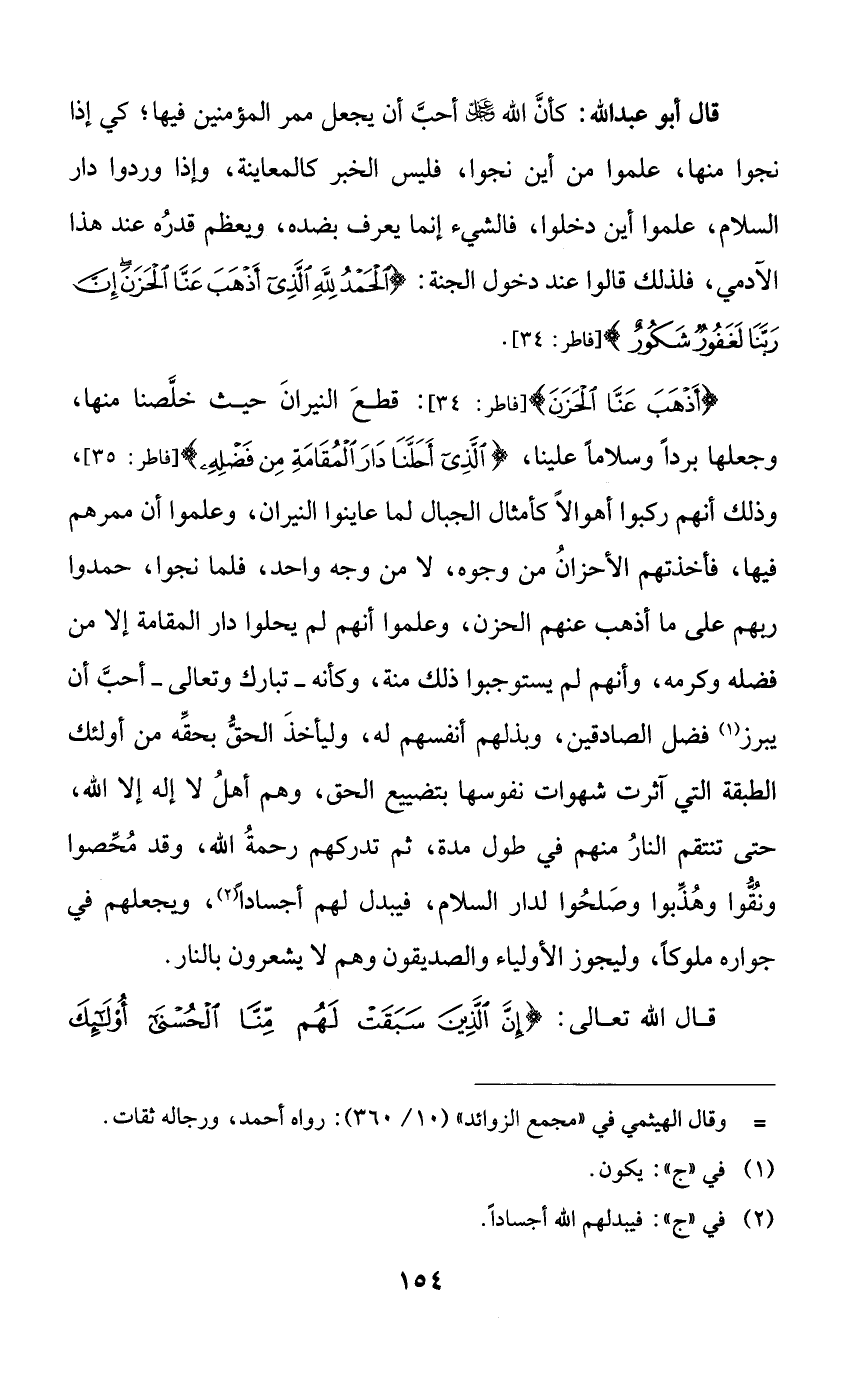 قال أبو عبدالله: كأنَّ الله ﷿ أحبَّ أن يجعل ممر المؤمنين فيها؛ كي إذا
نجوا منها، علموا من أين نجوا، فليس الخبر كالمعاينة، وإذا وردوا دار
السلام، علموا أين دخلوا، فالشيء إنما يعرف بضده، ويعظم قدرُه عند هذا
الآدمي، فلذلك قالوا عند دخول الجنة: ﴿ٱلۡحَمۡدُ لِلَّهِ ٱلَّذِيٓ أَذۡهَبَ عَنَّا ٱلۡحَزَنَۖ إِنَّ
رَبَّنَا لَغَفُورٞ شَكُورٌ﴾ [فاطر: ٣٤].
﴿أَذۡهَبَ عَنَّا ٱلۡحَزَنَ﴾ [فاطر: ٣٤]: قطعَ النيرانَ حيث خلَّصنا منها،
وجعلها برداً وسلاماً علينا، ﴿ٱلَّذِيٓ أَحَلَّنَا دَارَ ٱلۡمُقَامَةِ مِن فَضۡلِهِۦ﴾ [فاطر: ٣٥]،
وذلك أنهم ركبوا أهوالاً كأمثال الجبال لما عاينوا النيران، وعلموا أن ممرهم
فيها، فأخذتهم الأحزانُ من وجوه، لا من وجه واحد، فلما نجوا، حمدوا
ربهم على ما أذهب عنهم الحزن، وعلموا أنهم لم يحلوا دار المقامة إلا من
فضله وكرمه، وأنهم لم يستوجبوا ذلك منة، وكأنه ـ تبارك وتعالى ـ أحبَّ أن
يبرز(١) فضل الصادقين، وبذلهم أنفسهم له، وليأخذَ الحقُّ بحقِّه من أولئك
الطبقة التي آثرت شهوات نفوسها بتضييع الحق، وهم أهلُ لا إله إلا الله،
حتى تنتقم النارُ منهم في طول مدة، ثم تدركهم رحمةُ الله، وقد مُحِّصوا
ونُقُّوا وهُذِّبوا وصَلحُوا لدار السلام، فيبدل لهم أجساداً(٢)، ويجعلهم في
جواره ملوكاً، وليجوز الأولياء والصديقون وهم لا يشعرون بالنار.
قال الله تعالى: ﴿إِنَّ ٱلَّذِينَ سَبَقَتۡ لَهُم مِّنَّا ٱلۡحُسۡنَىٰٓ أُوْلَٰٓئِكَ
= وقال الهيثمي في «مجمع الزوائد» (١٠/ ٣٦٠): رواه أحمد، ورجاله ثقات.
(١) في «ج»: يكون.
(٢) في «ج»: فيبدلهم الله أجساداً.
١٥٤